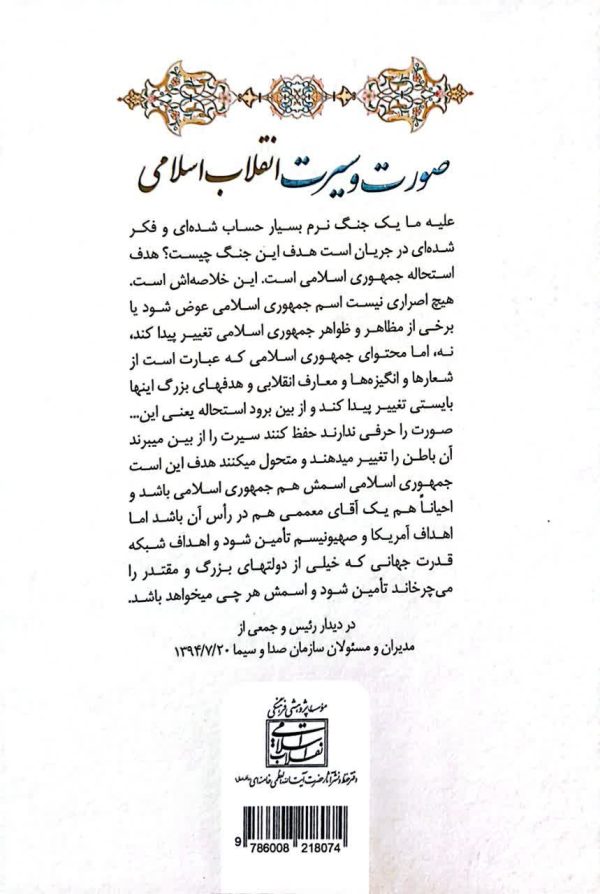 صورت و سیرت انقلاب اسلامی
علیه ما یک جنگ نرم بسیار حساب شده‌ای و فکر
شده‌ای در جریان است هدف این جنگ چیست؟ هدف
استحاله جمهوری اسلامی است. این خلاصه‌اش است.
هیچ اصراری نیست اسم جمهوری اسلامی عوض شود یا
برخی از مظاهر و ظواهر جمهوری اسلامی تغییر پیدا کند،
نه، اما محتوای جمهوری اسلامی که عبارت است از
شعارها و انگیزه‌ها و معارف انقلابی و هدفهای بزرگ اینها
بایستی تغییر پیدا کند و از بین برود استحاله یعنی این...
صورت را حرفی ندارند حفظ کنند سیرت را از بین میبرند
آن باطن را تغییر میدهند و متحول میکنند هدف این است
جمهوری اسلامی اسمش هم جمهوری اسلامی باشد و
احیاناً هم یک آقای معممی هم در رأس آن باشد اما
اهداف آمریکا و صهیونیسم تأمین شود و اهداف شبکه
قدرت جهانی که خیلی از دولتهای بزرگ و مقتدر را
می‌چرخاند تأمین شود و اسمش هر چی میخواهد باشد.
در دیدار رئیس و جمعی از
مدیران و مسئولان سازمان صدا و سیما ۱۳۹۴/۷/۲۰
مؤسسه پژوهشی فرهنگی
انقلاب اسلامی
دفتر حفظ و نشر آثار حضرت آیت‌الله العظمی خامنه‌ای
9 786008 218074